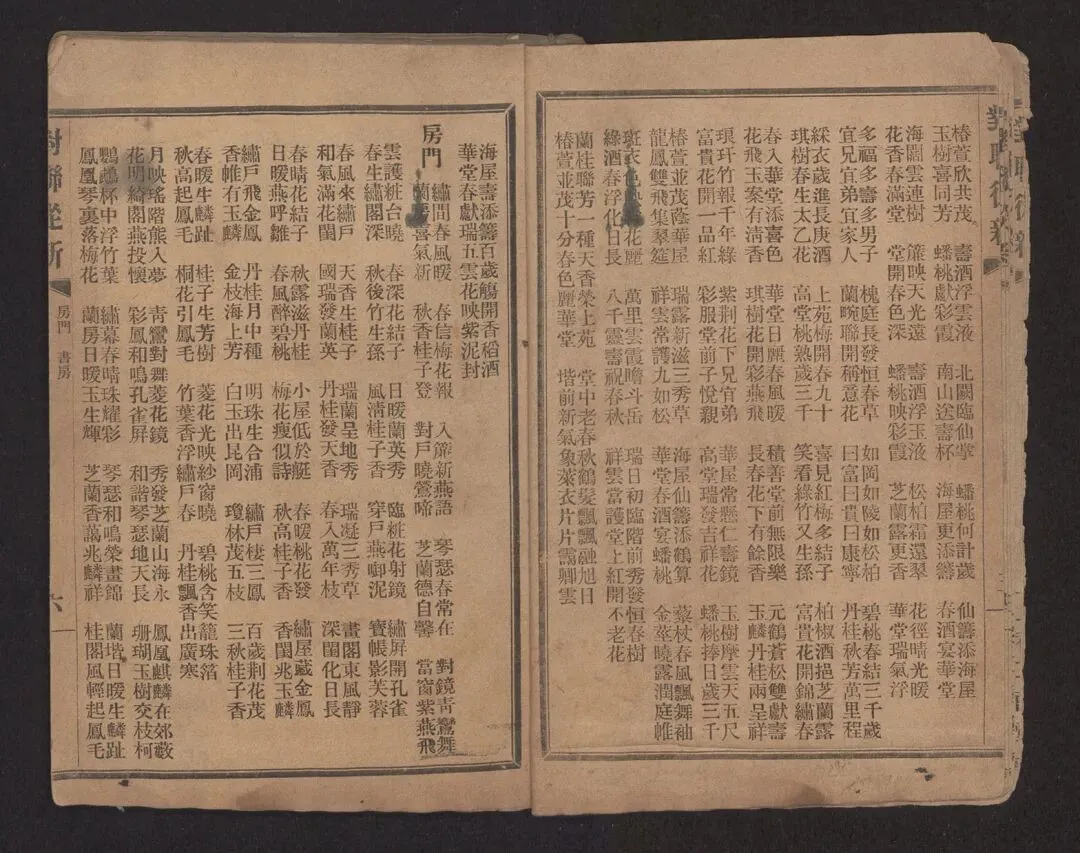 椿萱欣共茂 壽酒浮雲液 北闕臨仙掌 蟠桃何計歲 仙籌添海屋
玉樹喜同芳 蟠桃獻彩霞 南山送壽杯 海屋更添籌 春酒宴華堂
海闊雲連樹 簾映天光遠 壽酒浮玉液 松柏霜還翠 花徑晴光暖
花香春滿堂 堂開春色深 蟠桃映彩霞 芝蘭露更香 華堂瑞氣浮
多福多壽多男子 槐庭長發恒春草 如岡如陵如松柏 碧桃春結三千歲
宜兄宜弟宜家人 蘭畹聯開稱意花 曰富曰貴曰康寧 丹桂秋芳萬里程
綵衣歲進長庚酒 上苑梅開春九十 喜見紅梅多結子 柏椒酒挹芝蘭露
琪樹春生太乙花 高堂桃熟歲三千 笑看綠竹又生孫 富貴花開錦繡春
春入華堂添喜色 華堂日麗春風暖 積善堂前無限樂 元鶴蒼松雙獻壽
花飛玉案有清香 琪樹花開彩燕飛 長春花下有餘香 玉麟丹桂兩呈祥
琅玕竹報千年綠 紫荆花下兄宜弟 華屋常懸仁壽鏡 玉樹摩雲天五尺
富貴花開一品紅 彩服堂前子悅親 高堂瑞發吉祥花 蟠桃捧日歲三千
椿萱並茂蔭華屋 瑞露新滋三秀草 海屋仙籌添鶴算 藜杖春風飄舞袖
龍鳳雙飛集翠筵 祥雲常護九如松 華堂春酒宴蟠桃 金莖曉露潤庭帷
斑衣色花麗 萬里雲霞瞻斗岳 瑞日初臨階前秀發恒春樹
綠酒春浮化日長 八千靈壽祝春秋 祥雲當護堂上紅開不老花
蘭桂聯芳一種天香榮上苑 堂中老春秋鶴髮飄飄融旭日
椿萱並茂十分春色麗華堂 堦前新氣象萊衣片片靄卿雲
海屋壽添籌百歲觴開香稻酒
華堂春獻瑞五雲花映紫泥封
房門
繡閣春風暖 春信梅花報 入簾新燕語 琴瑟春常在 對鏡青鸞舞
蘭房喜氣新 秋香桂子登 對戶曉鶯啼 芝蘭德自馨 當窗紫燕飛
雲護粧台曉 春深花結子 日暖蘭英秀 臨粧花射鏡 繡屏開孔雀
春生繡閣深 秋後竹生孫 風清桂子香 穿戶燕啣泥 寶帳影芙蓉
春風來繡戶 天香生桂子 瑞蘭呈地秀 瑞凝三秀草 畫閣東風靜
和氣滿花闈 國瑞發蘭英 丹桂發天香 春入萬年枝 深閨化日長
春晴花結子 秋露滋丹桂 小屋低於艇 春暖桃花發 繡屋藏金鳳
日暖燕呼雛 春風醉碧桃 梅花瘦似詩 秋高桂子香 香閨兆玉麟
繡戶飛金鳳 丹桂月中種 明珠生合浦 繡戶棲三鳳 百歲荆花茂
香帷有玉麟 金枝海上芳 白玉出昆岡 瓊林茂五枝 三秋桂子香
春暖生麟趾 桂子生芳樹 菱花光映紗窗曉 碧桃含笑籠珠箔
秋高起鳳毛 桐花引鳳毛 竹葉香浮繡戶春 丹桂飄香出廣寒
月映瑤階熊入夢 青鸞對舞菱花鏡 秀發芝蘭山海永 鳳凰麒麟在郊藪
花明綺閣燕投懷 彩鳳和鳴孔雀屏 和諧琴瑟地天長 珊瑚玉樹交枝柯
鸚鵡杯中浮竹葉 繡幕春晴珠耀彩 琴瑟和鳴榮晝錦 蘭堦日暖生麟趾
鳳凰琴裏落梅花 蘭房日暖玉生輝 芝蘭香藹兆麟祥 桂閣風輕起鳳毛
對聯從新 房門 書房 六